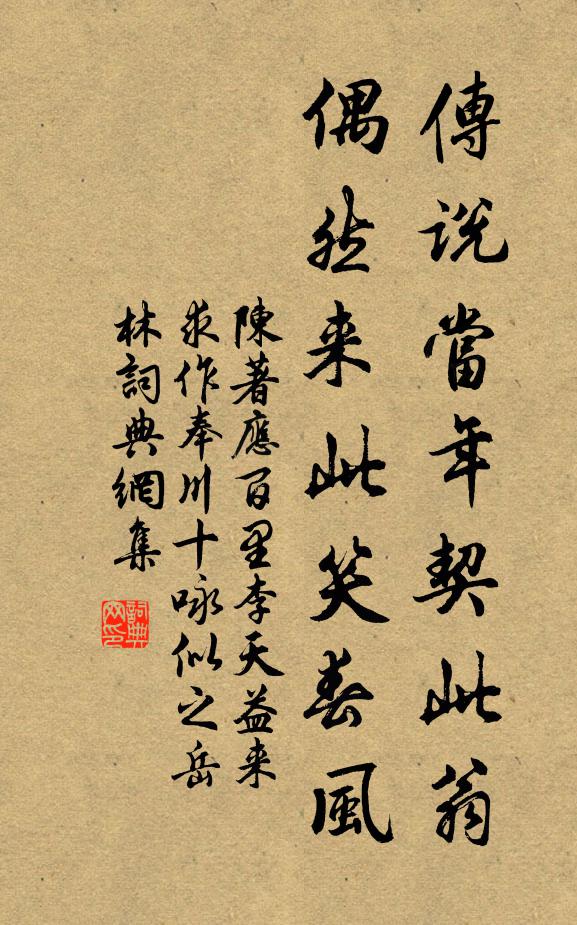 傳說當年契此翁
偶然来此笑春風
陳著應百里李天益来
求作奉川十咏似之岳
林詞典網集
詞典
网印